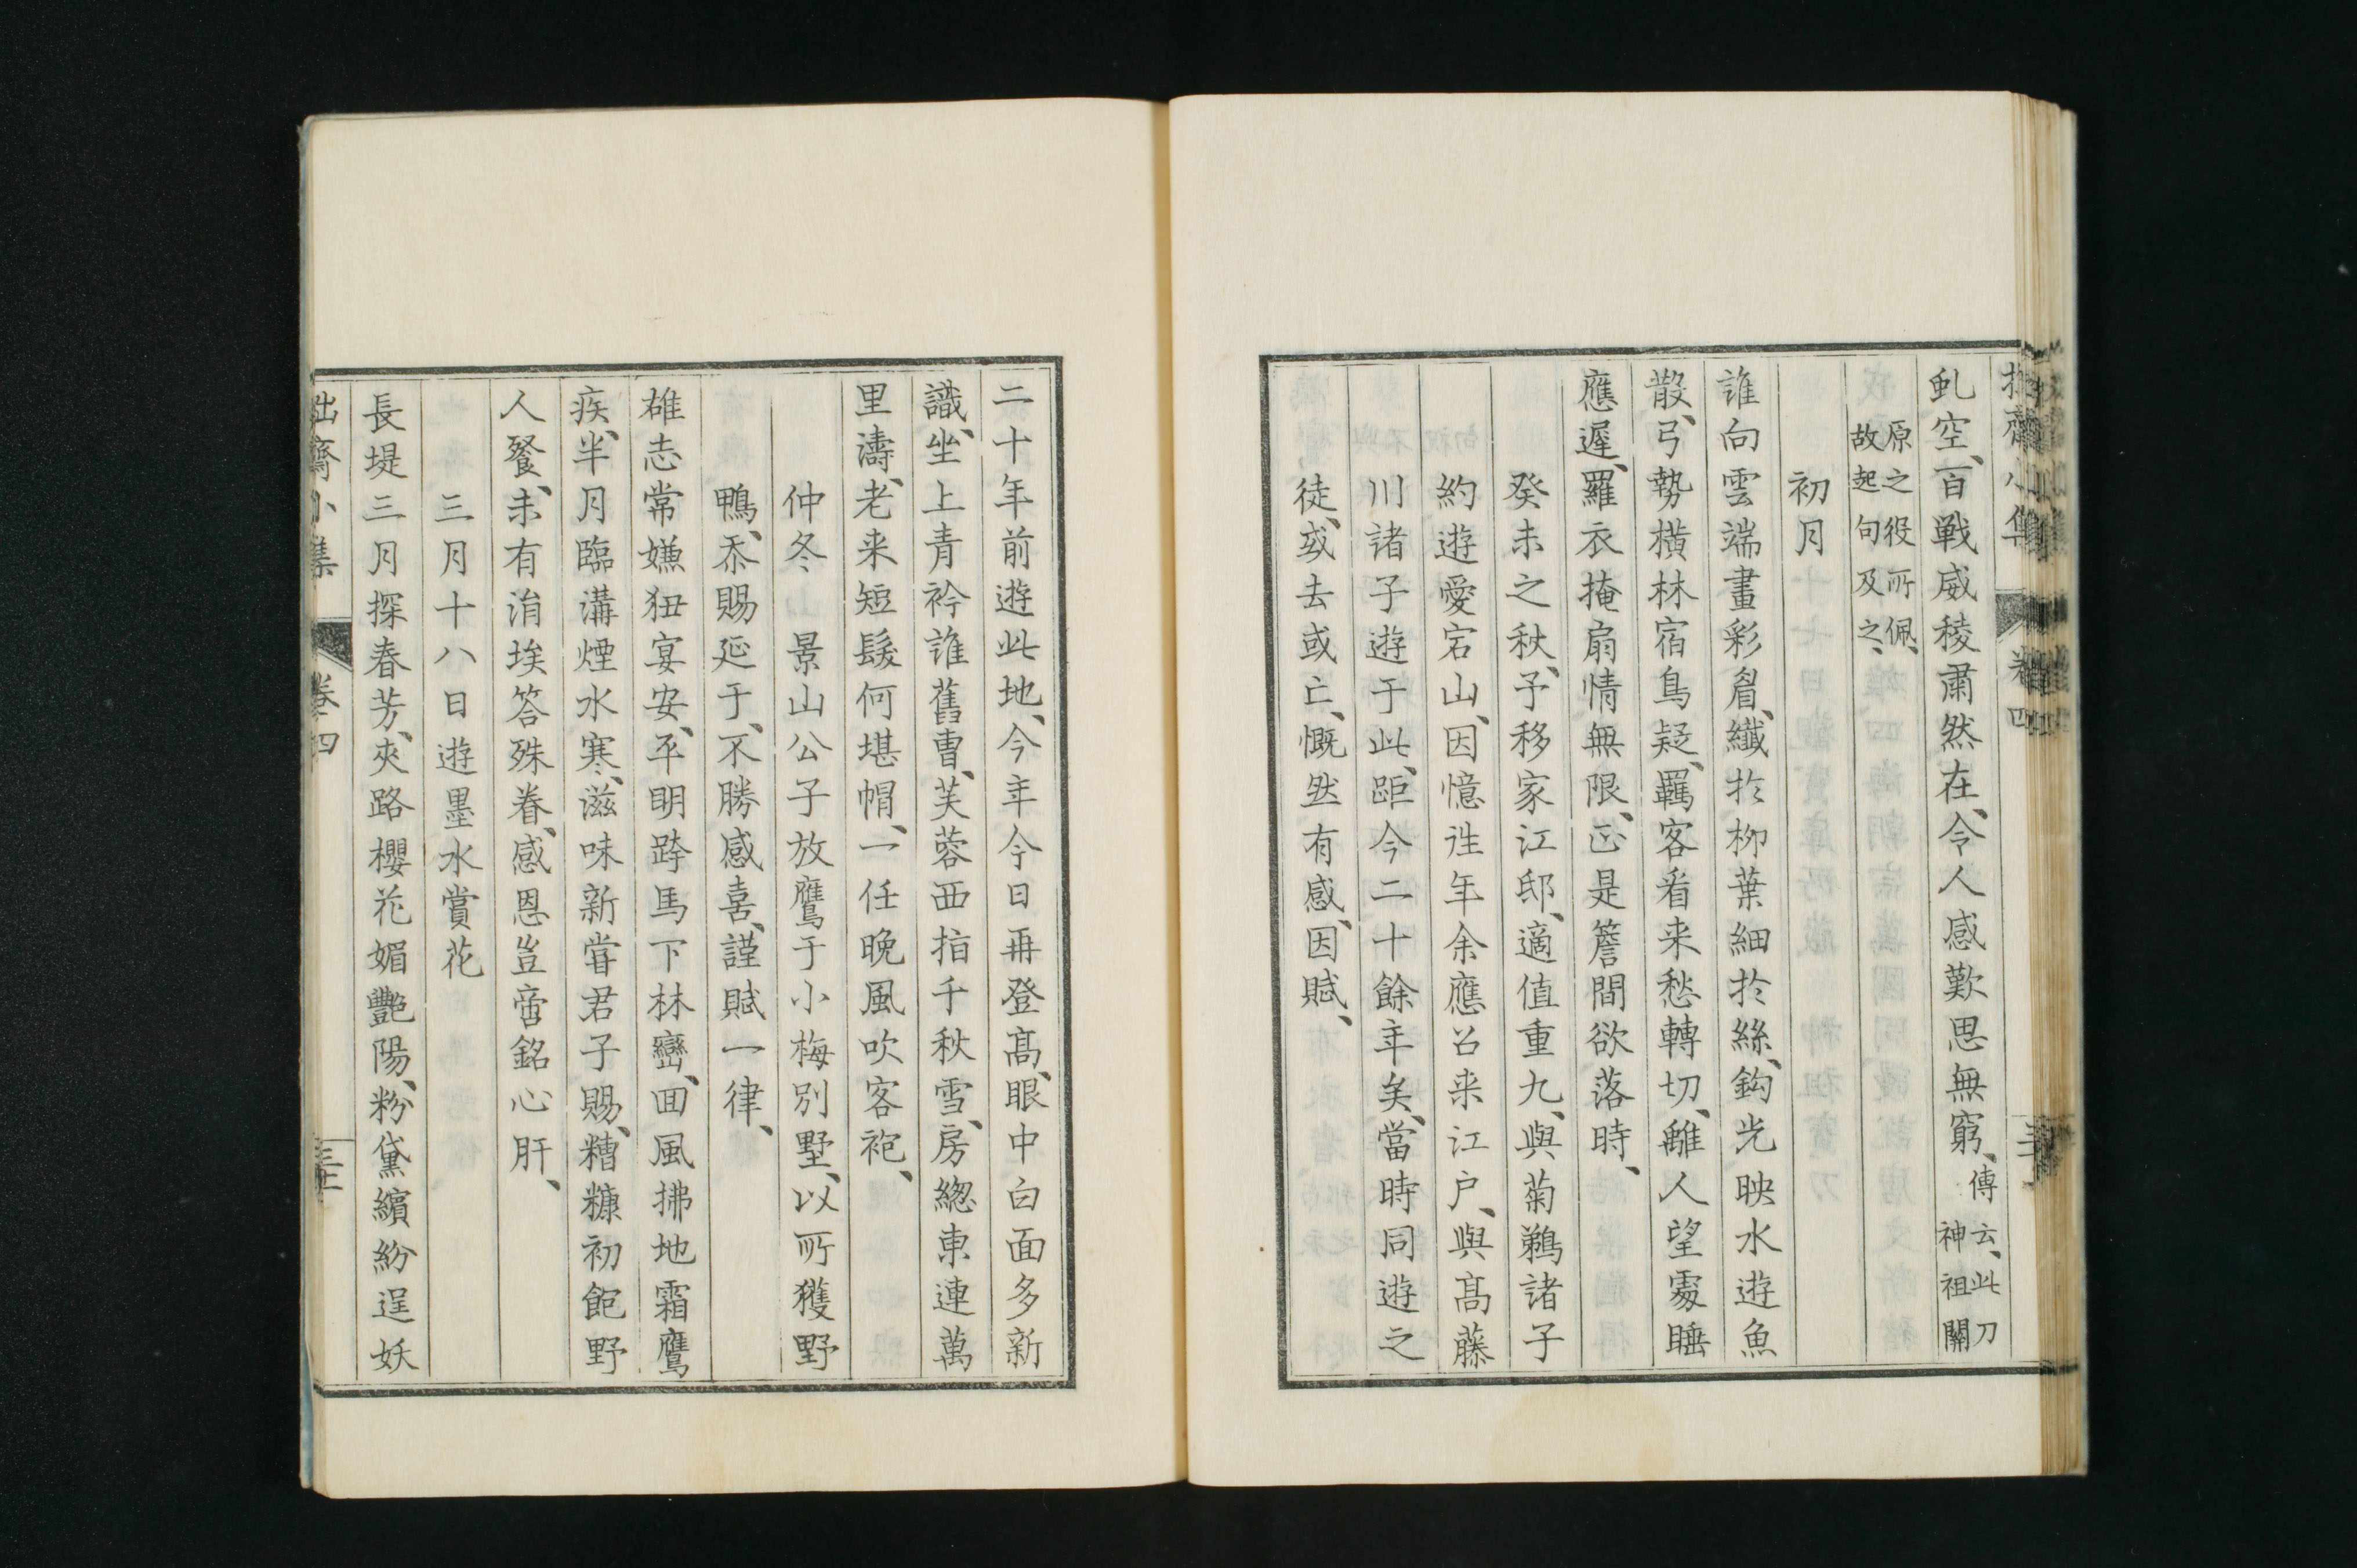 虬空、百戦威稜肅然在、令人感歎思無窮、傳云、此刀神祖關
原之役所佩、故起句及之、
初月
誰向雲端畫彩眉、纖於柳葉細於絲、鈎光映水遊魚
散、弓勢横林宿鳥疑、羈客看来愁轉切、離人望處睡
應遲、羅衣掩扇情無限、正是簷間欲落時、
癸未之秋、予移家江邸、適值重九、與菊鵜諸子
約遊愛宕山、因憶往年余應召来江户、與髙藤
川諸子遊于此、距今二十餘年矣、當時同遊之
徒、或去或亡、慨然有感、因賦、
二十年前遊此地、今年今日再登髙、眼中白面多新
識、坐上青衿誰舊曹、芙蓉西指千秋雪、房総東連萬
里濤、老来短髮何堪帽、一任晩風吹客袍、
仲冬　景山公子放鷹于小梅別墅、以所獲野
鴨、忝賜延于、不勝感喜、謹賦一律、
雄志常嫌狃宴安、平明跨馬下林巒、回風拂地霜鷹
疾、半月臨溝煙水寒、滋味新嘗君子賜、糟糠初飽野
人餐、未有涓埃答殊眷、感恩豈啻銘心肝、
三月十八日遊墨水賞花
長堤三月探春芳、夾路櫻花媚艷陽、粉黛繽紛逞妖
拙齋小集　卷四